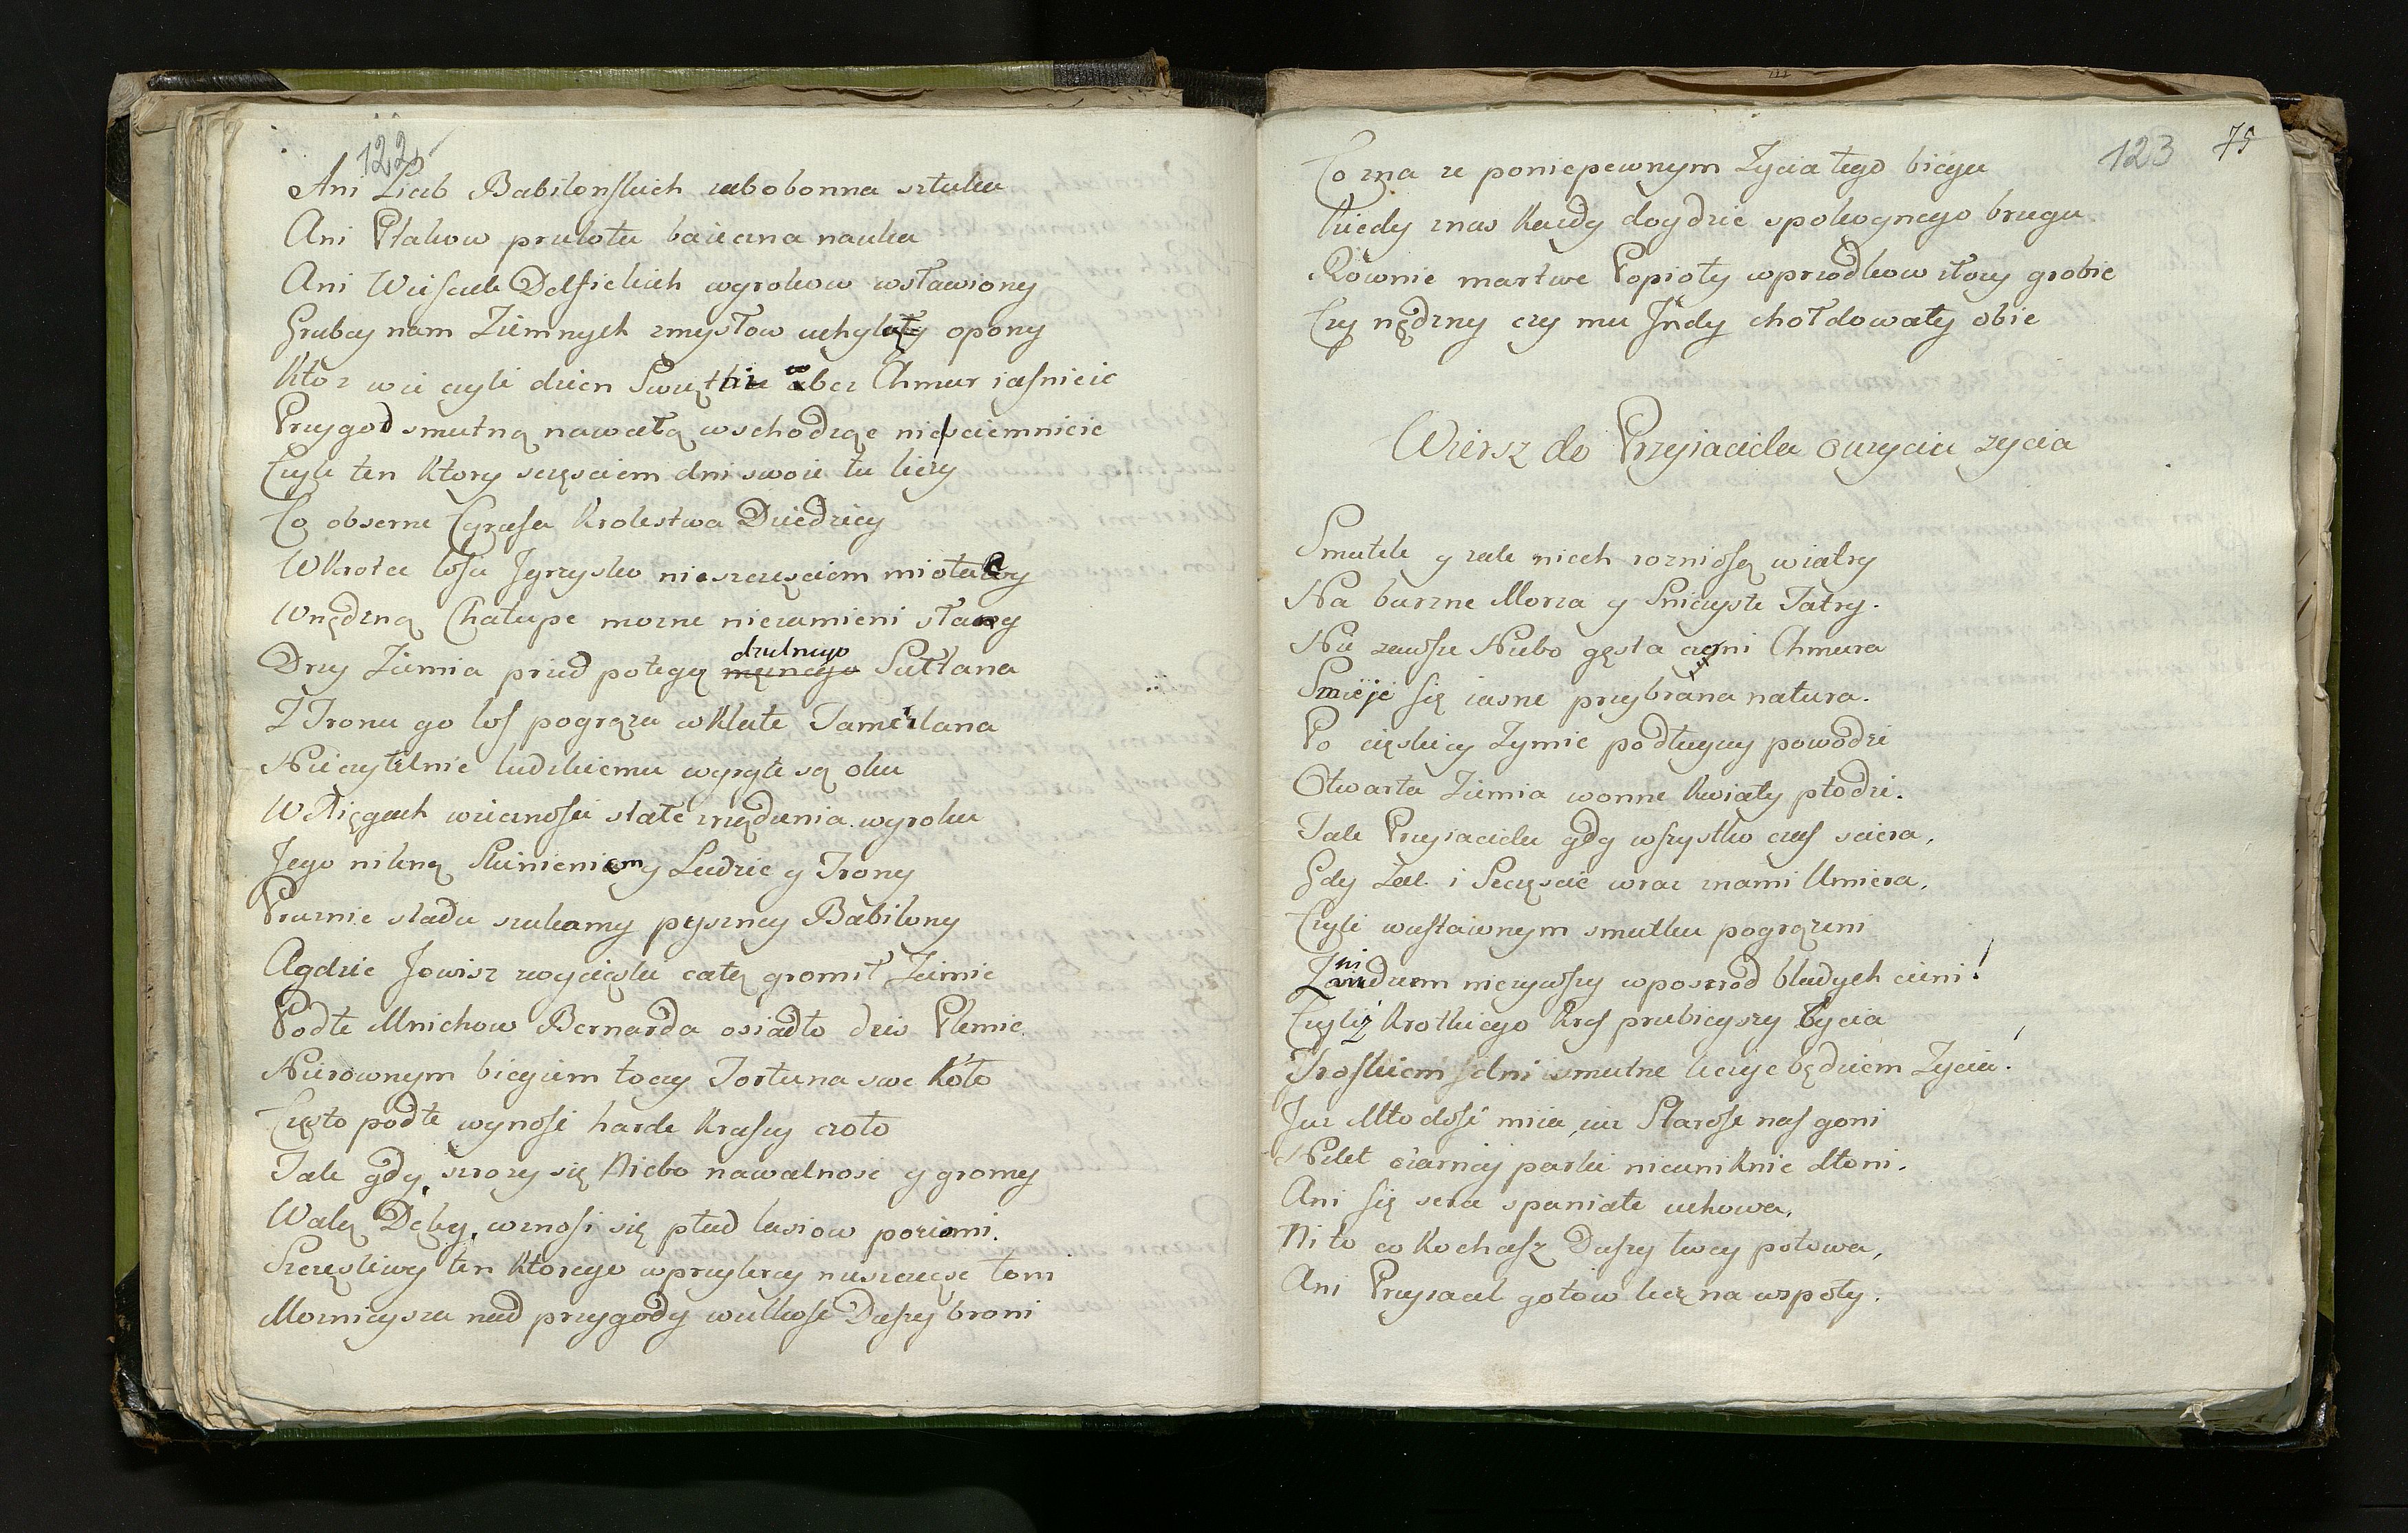 122
Ani Liczb Babilonskich zabobonna sztuka
Ani Ptakow przelotu baieczna nauka
Ani Wieszczek Delfickich wyrokow wsławiony
Grubey nam Ziemnych zmysłow uchyla opony
Ktoz wie czyli dzien bez Chmur iasnieie
Przygod smutną nawałą wschodząc nie sciemnieie
Czyli ten ktory sczęsciem dni swoie tu liczy
Co obszerne Cyrusa Krolestwa Dziedziczy
Wkrotce losu Jgrzysko nieszczęsciem miotany
Wnędzną Chatupe mozne niezamieni stany
Drzy Ziemia przed potegą mężnego dzielnego Sułtana
Z Tronu go los pogrąza w Klate Tamerlana
Nieczytelnie ludzkiemu wyryte są oku
W Xięgach wiecznosci stałe rządzenia wyroku
Jego nikną Skinieniem y Ludzie y Trony
Proznie sladu szukamy pyszney Babilony
Agdzie Jowisz zwycięzko całą gromił Ziemie
Podłe Mnichow Bernarda osiadło dzis Plemie.
Nierownym biegiem toczy Fortuna swe Koło
Częsło podłe wynosi harde Kruszy czoło
Tak gdy srozy się Niebo nawalnosc y gromy
Walą Dęby, wznosi się płud lasiow poziomi.
Szczęsliwy ten ktorego wprzykrey nieszczęsc toni
Mocnieysza nad przygody wielkosc Duszy broni
123 75
Co zna ze poniepewnym Zycia tego biegu
Kiedy znas Kazdy doydzie spokoynego brzegu
Rownie martwe Popioły wprzodkow złozy grobie
Czy nędzny czy mu Jndy chołdowały obie
Wiersz do Przyiaciela o uzyciu zycia
Smutek y zale niech rozniosą wiatry
Na burzne Morza y Snieżyste Tatry.
Nie zawsze Niebo gęsta czerni Chmura
Smieje się iasne przybrana natura.
Po cięzkiey Zymie podługiey powodzi
Otwarta Ziemia wonne kwiaty płodzi.
Tak Przyiacielu gdy wszystko czas sciera,
Gdy Zal i Sczęscie wraz znami Umiera,
Czyli wustawnym smutku pogrązeni
nieżywszy wposrzod bladych cieni!
Czyliż krotkiego Kres przebiegszy Bycia
Troskiem dni smutne liczyc będziem Zycia!
Juz Młodosc miia, iuz Starosc nas goni
Nikt czarney parki nieuniknie dłoni.
Ani się serce spaniałe uchowa,
Ni to co kochasz Duszy twey połowa,
Ani Przyiaciel gotow lec na wspoły.